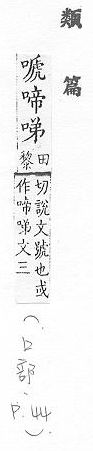 類篇
嗁啼㖒
田黎
切說文號也或
作啼㖒文三
(口部、P.44)